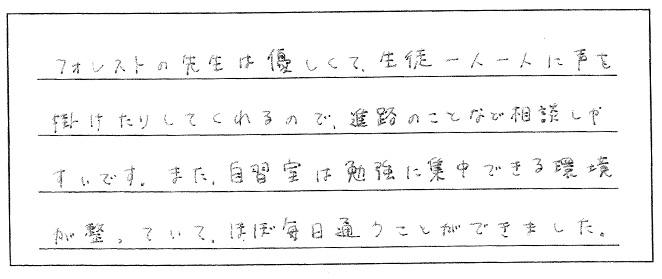 フォレストの先生は優しくて、生徒一人一人に声を
掛けたりしてくれるので、進路のことなど相談しや
すいです。また、自習室は勉強に集中できる環境
が整っていて、ほぼ毎日通うことができました。